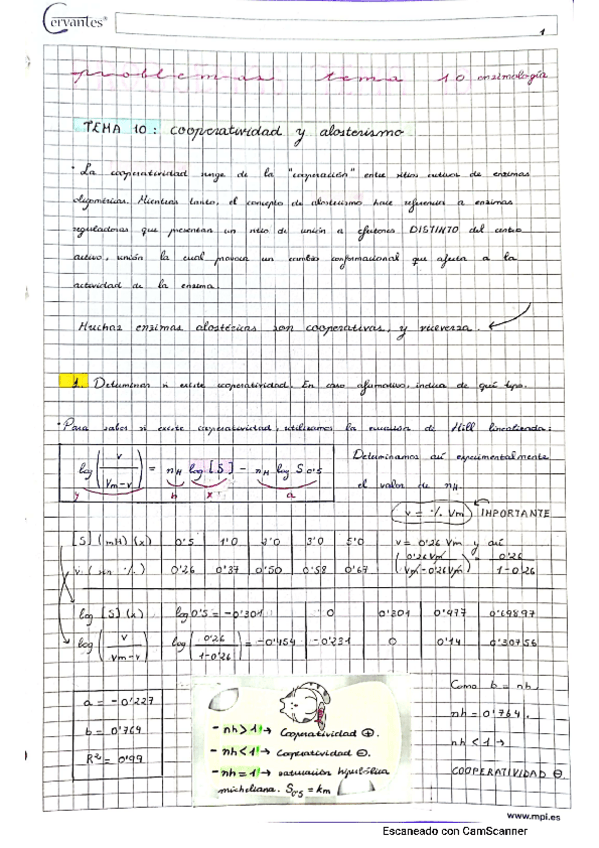 Cervantes®
1
problemas tema 10 enzimología
TEMA 10: cooperatividad y alosterismo
· La cooperatividad surge de la "cooperación" entre sitios activos de enzimas
oligoméricas. Mientras tanto, el concepto de alosterismo hace referencia a enzimas
reguladoras que presentan un sitio de unión a efectores DISTINTO del centro
activo, unión la cual provoca un cambio conformacional que afecta a la
actividad de la enzima.
Muchas enzimas alostéricas son cooperativas, y viceversa.
1. Determinar si existe cooperatividad. En caso afirmativo, indica de qué tipo.
· Para saber si existe cooperatividad, utilizamos la ecuación de Hill linealizada:
log (v / Vm-v) = nH log [S] - nH log S0'5
y b x a
Determinamos así experimentalmente
el valor de nH.
v = % Vm IMPORTANTE
[S] (mM) (x) 0'5 1'0 2'0 3'0 5'0
v (en %) 0'26 0'37 0'50 0'58 0'67
v = 0'26 Vm y así
(0'26 Vm / Vm - 0'26 Vm) = 0'26 / 1-0'26
log [S] (x) log 0'5 = -0'301 0 0'301 0'477 0'69897
log (v / Vm-v) log (0'26 / 1-0'26) = -0'454 -0'231 0 0'14 0'30756
a = -0'227
b = 0'764
R² = 0'99
- nh > 1 → Cooperatividad ⊕.
- nh < 1 → Cooperatividad ⊖.
- nh = 1 → saturación hiperbólica
micheliana. S0'5 = km
Como b = nh,
nh = 0'764.
nh < 1 →
COOPERATIVIDAD ⊖
www.mpi.es
Escaneado con CamScanner